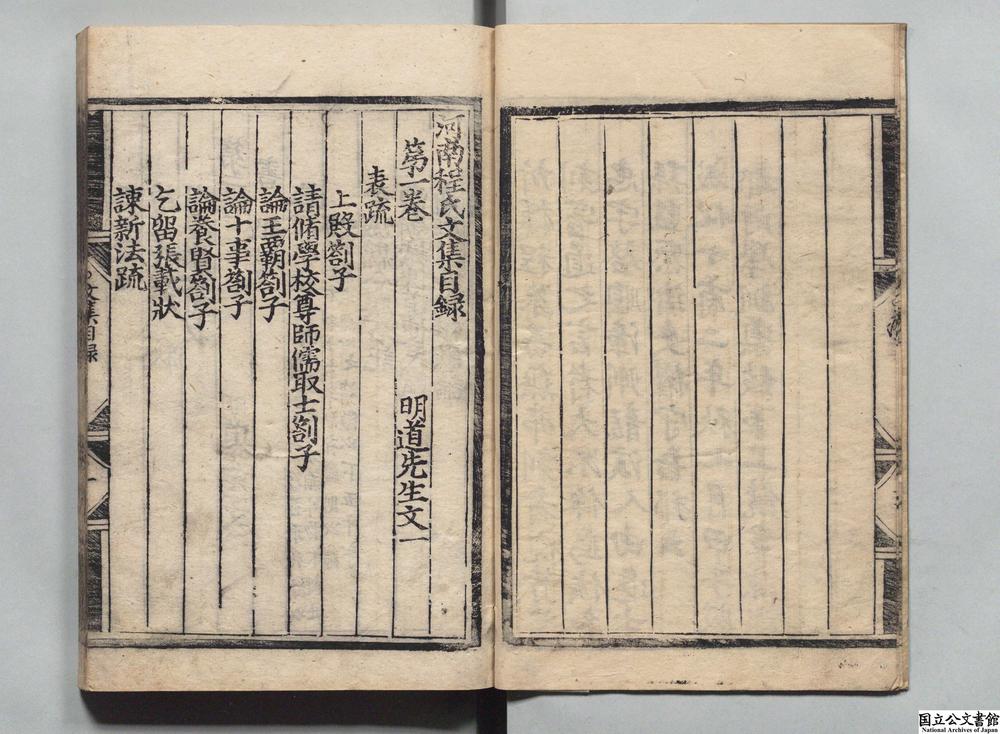 河南程氏文集目録
第一卷 明道先生文一
表疏
上殿劄子
請脩學校尊師儒取士劄子
論王霸劄子
論十事劄子
論養賢劄子
乞留張載狀
諫新法疏
文集目録
国立公文書館
National Archives of Japan